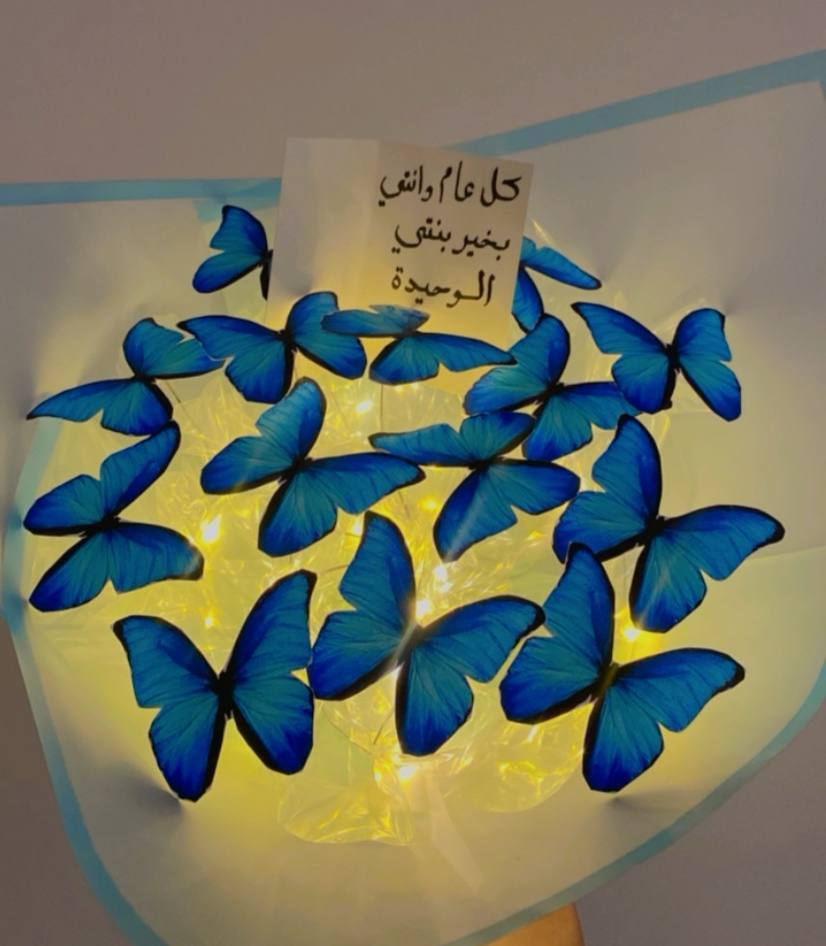 كل عام وانتي
بخير بنتي
الوحيدة